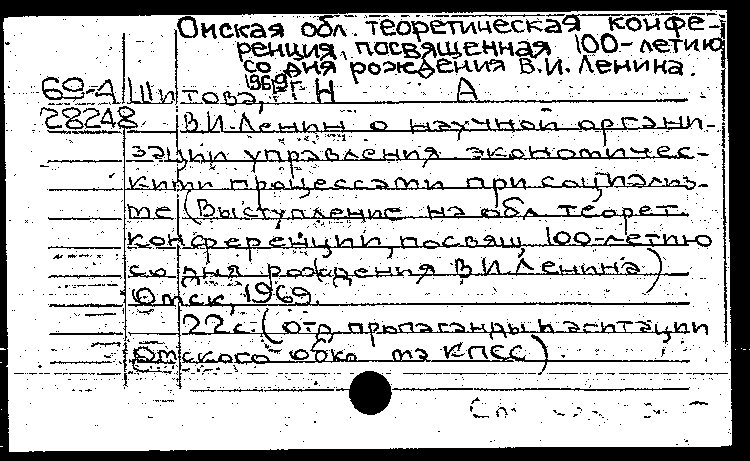 Омская обл. теоретическая конфе-
ренция, посвященная 100-летию
со дня рождения В.И. Ленина.
1969 г
69-4 Шитова, Н А
28248 В.И. Ленин о научной органи-
зации управления экономичес-
кими процессами при социализ-
ме (Выступление на обл. теорет.
конференции, посвящ. 100-летию
со дня рождения В.И. Ленина)
Омск, 1969.
22 с. (отд. пропаганды и агитации
Омского обко ма КПСС).